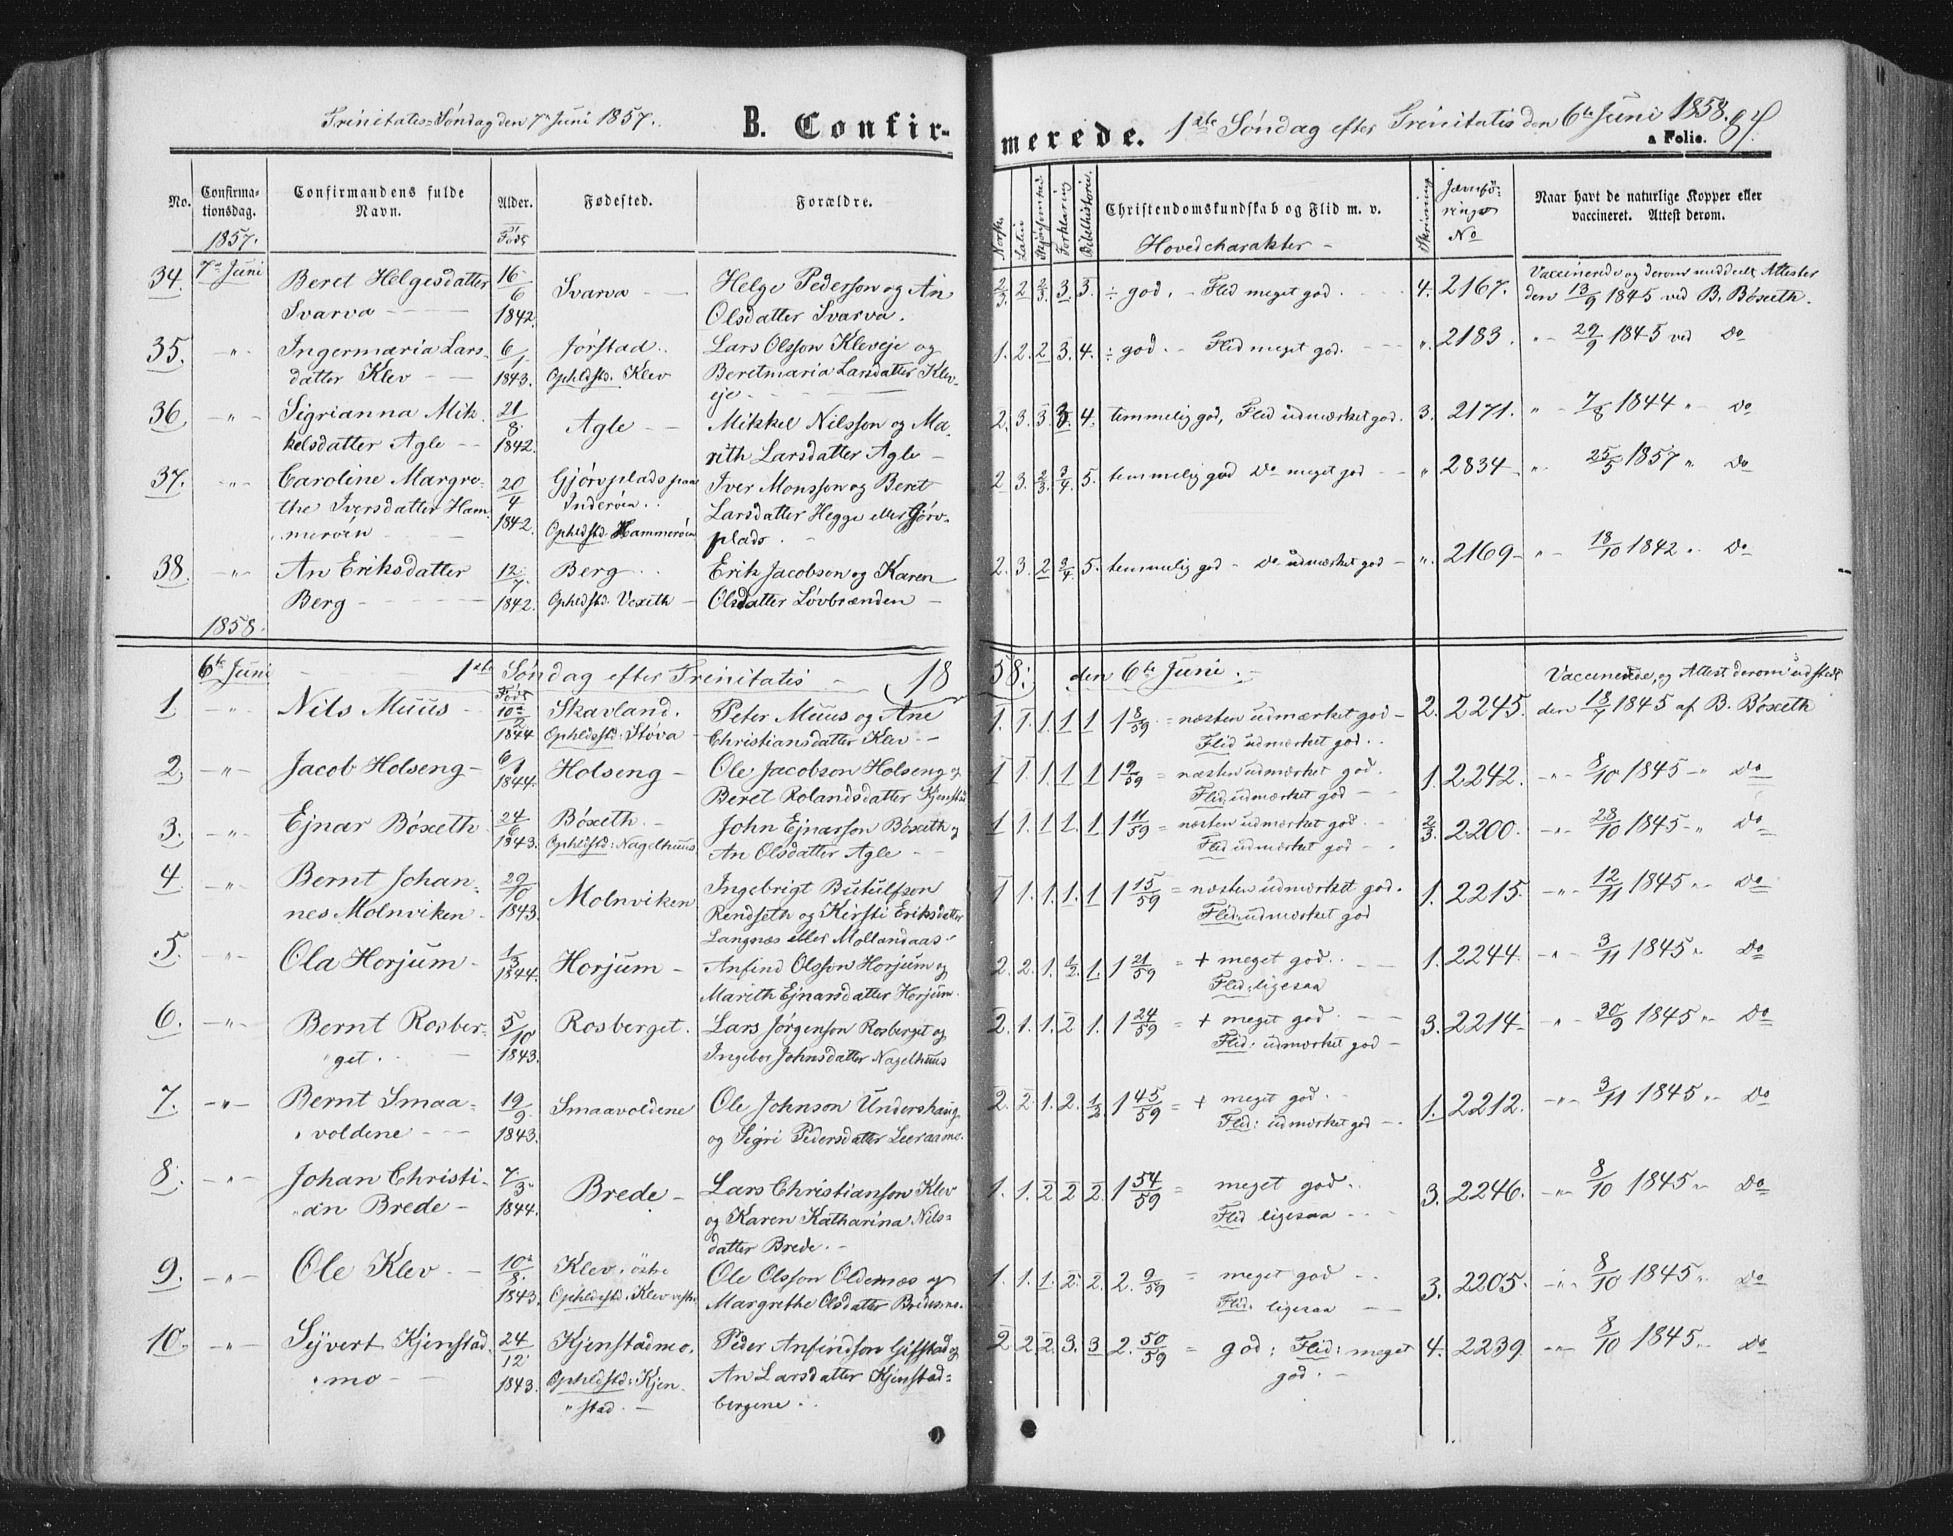 Trinitatis-Søndag den 7de Juni 1857.
B. Confir-
No.
Confirma-
tionsdag.
Confirmandens fulde
Navn.
Alder.
Fødested.
Forældre.
1857.
Født
34. 7de Juni Beret Helgesdatter 16/6 Svarva Helge Pederson og An
Svarva 1842. Olsdatter Svarva.
35. " Ingermaria Lars- 6/1 Jørstad. Lars Olsson Kleveje og
datter Klev 1843. Opholdstd. Klev Beretmaria Larsdatter Klev-
eje
36 " Sigrianna Mik- 21/8 Agle Mikkel Nilsson og Ma-
kelsdatter Agle 1842. rith Larsdatter Agle
37. " Caroline Margre- 20/4 Gjørvplads paa Iver Monsson og Beret
the Iversdatter Ham- 1842. Inderøen. Larsdatter Hegge eller Gjørv-
merøen Opholdstd. Hammerøen plads.
38. " An Eriksdatter 12/7 Berg. Erik Jacobson og Karen
Berg 1842. Opholdstd. Vexeth Olsdatter Løvbrænden
1858.
6te Juni 1ste Søndag efter Trinitatis 18
1. " Nils Muus Født 10de/2 1844 Skavland. Peter Muus og Ane
Opholdsstd: Støva Christiansdatter Klev
2. " Jacob Holseng 6/1 1844. Holseng Ole Jacobson Holseng og
Beret Rolandsdatter Kjenstad
3. " Ejnar Bøxeth 24/6 1843. Bøxeth. John Ejnarson Bøxeth og
Opholdstd: Nagelhuus An Olsdatter Agle
4. " Bernt Johan- 29/10 1843. Molnviken Ingebrigt Bututfson
nes Molnviken Rendseth og Kirsti Eriksdatter
Langnæs eller Mollandaas
5. " Ola Horjum 1/3 1844. Horjum Anfind Olsson Horjum og
Marith Ejnarsdatter Horjum.
6. " Bernt Rosber- 5/10 1843. Rosberget. Lars Jørgenson Rosberget og
get. Ingebor Johnsdatter Nagelhuus
7. " Bernt Smaa- 19/9 1843. Smaavoldene Ole Johnson Undershaug
voldene og Sigri Pedersdatter Leeraamo.
8. " Johan Christi- 7/3 1844. Brede Lars Christianson Klev
an Brede og Karen Katharina Nils-
datter Brede.
9. " Ole Klev 10de/8 1843. Klev østre Ole Olsson Oldernæs og
Opholdstd: Klev vestre Margrethe Olsdatter Bredesmo.
10. " Syvert Kjenstad 24/12 1843. Kjenstadmo. Peder Anfindson Gifstad og
mo Opholdstd: Kjen- An Larsdatter Kjenstad-
stad. bergene.
merede.
1ste Søndag efter Trinitatis den 6te Juni 1858.
a Folio.
Norsk.
Latin
Forklaring
Bibelhistorie.
Christendomskundskab og Flid m. v.
Hovedcharakter
Skrivning
Jævnfø-
rings
No
Naar havt de naturlige Kopper eller
vaccineret. Attest derom.
2/3 2 2/3 3 3. ÷ god. Flid meget god. 4. 2167. Vaccinerede og derom meddeelt Attester
den 13/9 1845 ved B. Bøxeth.
1. 2. 2 3. 4. ÷ god. Flid meget god. " 2183. " 29/9 1845 ved Do
2. 3. 3. 3 4. temmelig god, Flid udmærket god. 3. 2171. " 7/8 1844 " Do
2 3. 2/3. 3/4. 5. temmelig god Do meget god " 2834 " 25/5 1857 " Do
2. 3. 2 3/4. 5. temmelig god Do udmærket god " 2169 " 18/10 1842 " Do
58: den 6te Juni. Vaccinerede, og Attest derom udstedt
1. 1. 1. 1 1 1 8/59 = næsten udmærket god 2. 2245. den 13/7 1845 af B. Bøxeth
Flid udmærket god.
1 1. 1. 1 1 1 9/59 = næsten udmærket god. 1. 2242. " 8/10 1845 " Do
Flid udmærket god
1 1. 1 1. 1 1 11/59 = næsten udmærket god. 2/3 2200. " 28/10 1845 " Do
Flid udmærket god
1 1. 1. 1. 1 1 15/59 = næsten udmærket god. 1. 2215. " 12/11 1845 " Do
Flid udmærket god
2. 2. 1. 1/2. 1. 1 21/59 = + meget god. 1. 2244. " 3/11 1845 " Do
Flid: ligesaa
2. 1. 1. 2 1. 1 24/59 = + meget god. 3. 2214. " 30/9 1845 " Do
Flid: udmærket god
2. 2. 1. 2. 1/2 1 45/59 = + meget god. 1. 2212. " 3/11 1845 " Do
Flid: udmærket god
1. 1. 2 2 2. 1 54/59 = meget god. 3. 2246. " 8/10 1845 " Do
Flid ligesaa
1. 1. 1. 2. 2. 2. 9/59 = meget god 3. 2205. " 8/10 1845 " Do
Flid: ligesaa
2 2 2. 3. 3 2. 50/59 = god; Flid: meget 4. 2239. " 8/10 1845 " Do
god.